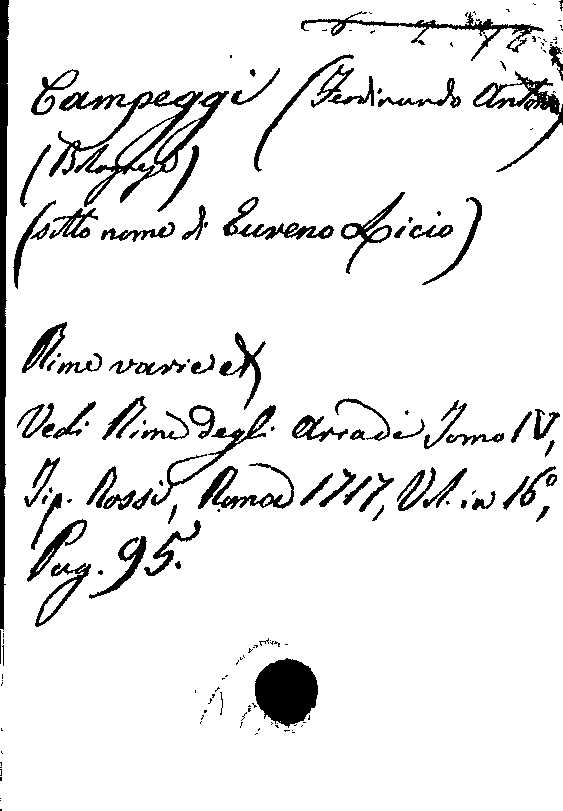 Campeggi (Ferdinando Antonio
(Bolognese)
(sotto nome di Eureno Licio)
Rime varie
Vedi Rime degli Arcadi Tomo IV,
Tip. Rossi, Roma 1717, Vol. in 16°,
Pag. 95.